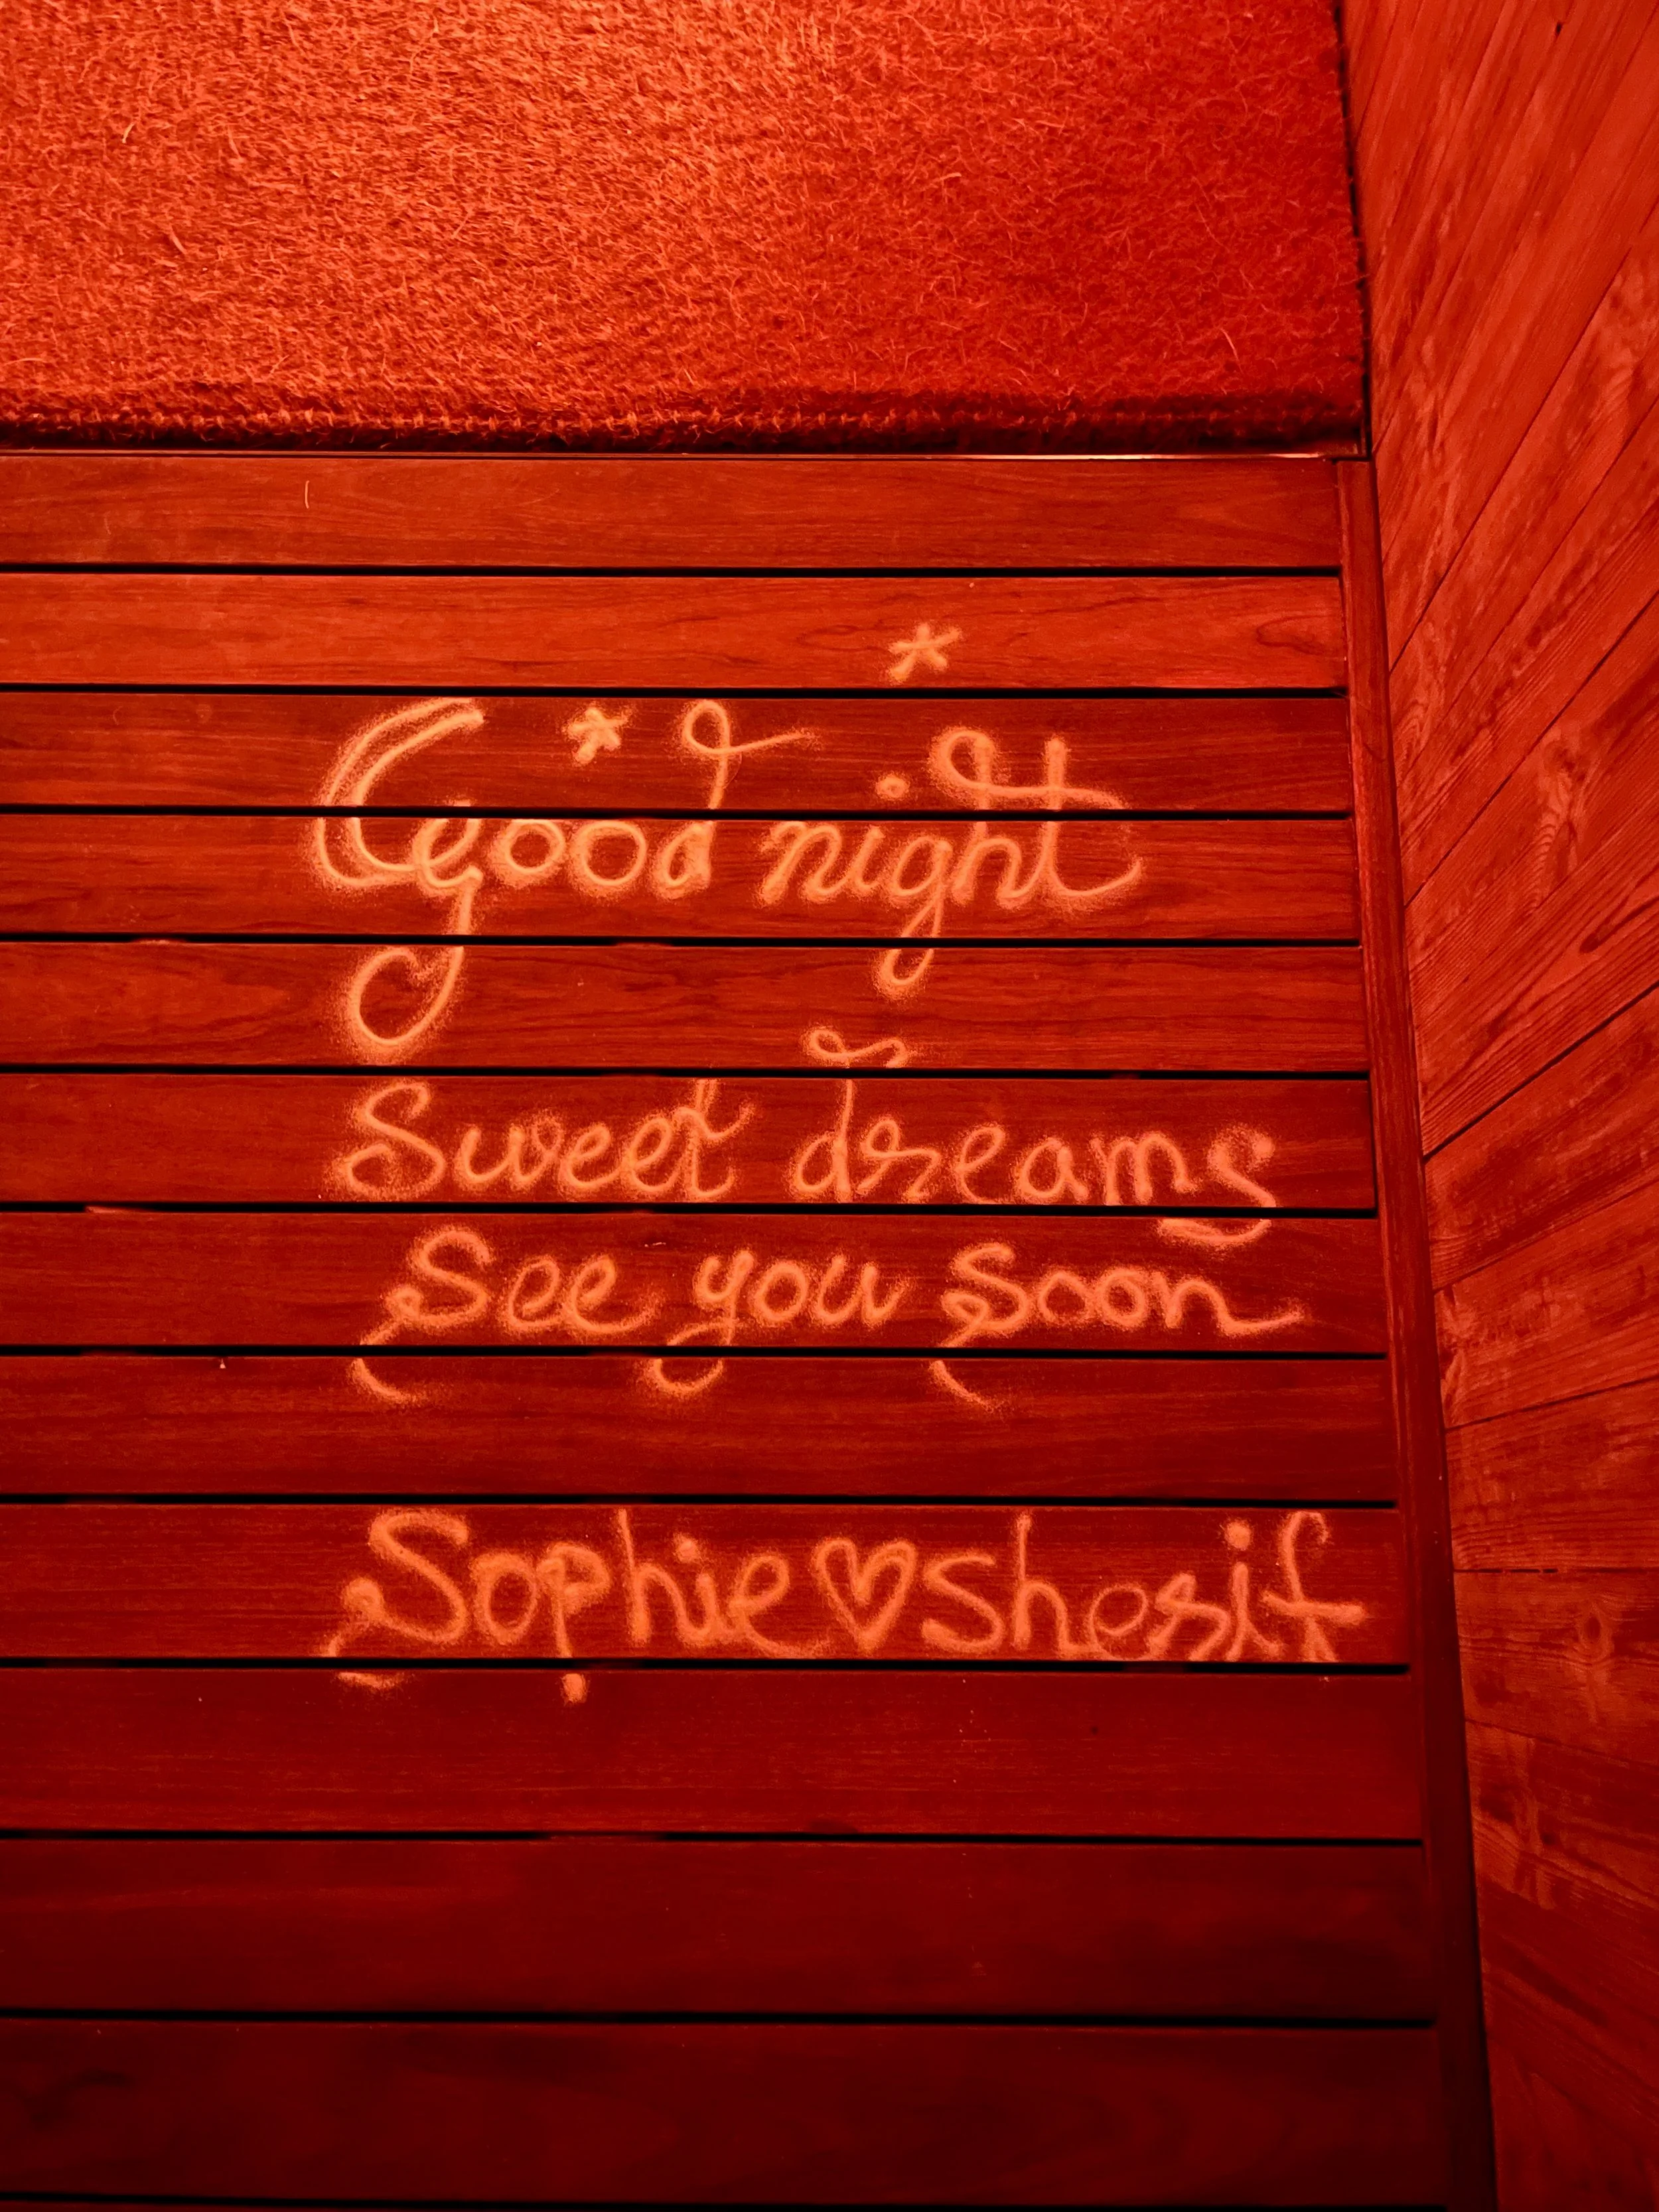 Good night
Sweet dreams
See you Soon
Sophie♡Sherif